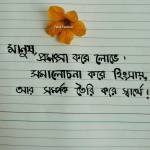 মানুষ,
প্রশংসা করে লোভে!
সমালোচনা করে হিংসায়,
আর সম্পর্ক তৈরি করে স্বার্থে!